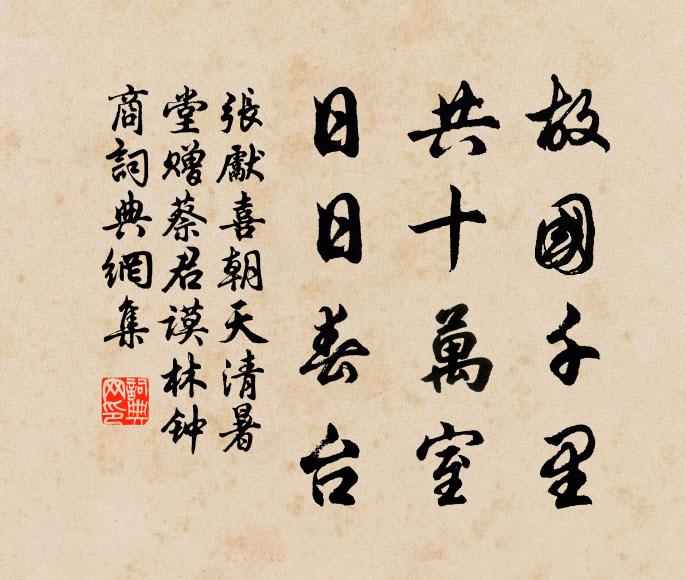 故國千里
共十萬室
日日春台
張獻喜朝天清暑
堂贈蔡君謨林钟
商詞典網集
詞典網印